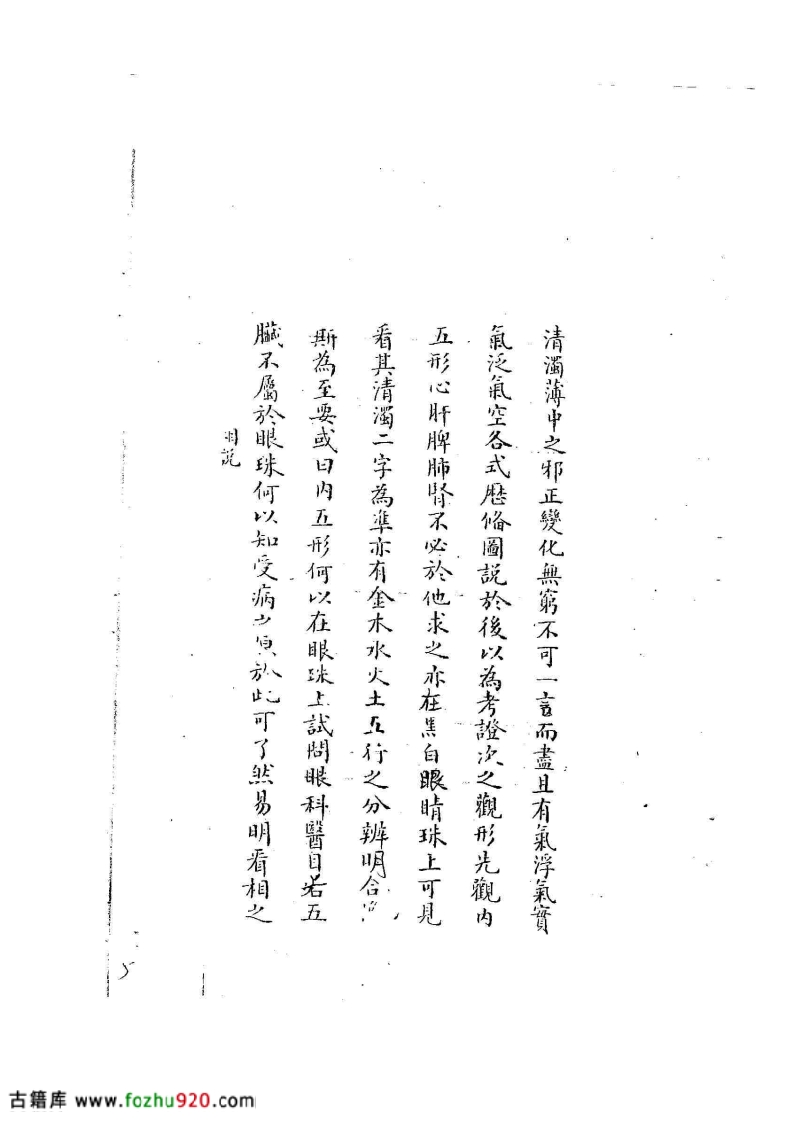 清濁薄中之邪正變化無窮不可一言而盡且有氣浮氣實
氣泛氣空各式歷脩圖說於後以為考證次之觀形先觀內
五形心肝脾肺腎不必於他求之亦在黑白眼睛珠上可見
看其清濁二字為準亦有金木水火土五行之分辨明合
斯為至要或曰內五形何以在眼珠上試問眼科醫目若五
臟不屬於眼珠何以知受病之原於此可了然易明看相之
相說
5
古籍库 www.fozhu920.com